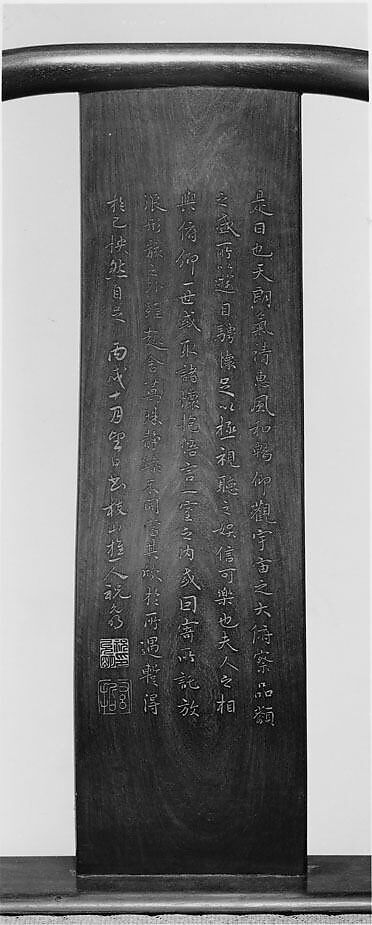 是日也天朗氣清惠風和暢仰觀宇宙之大俯察品類
之盛所以遊目騁懷足以極視聽之娛信可樂也夫人之相
與俯仰一世或取諸懷抱悟言一室之內或因寄所託放
浪形骸之外雖趣舍萬殊靜躁不同當其欣於所遇暫得
於己怏然自足 丙戌十月望日書枝山樵人祝允明